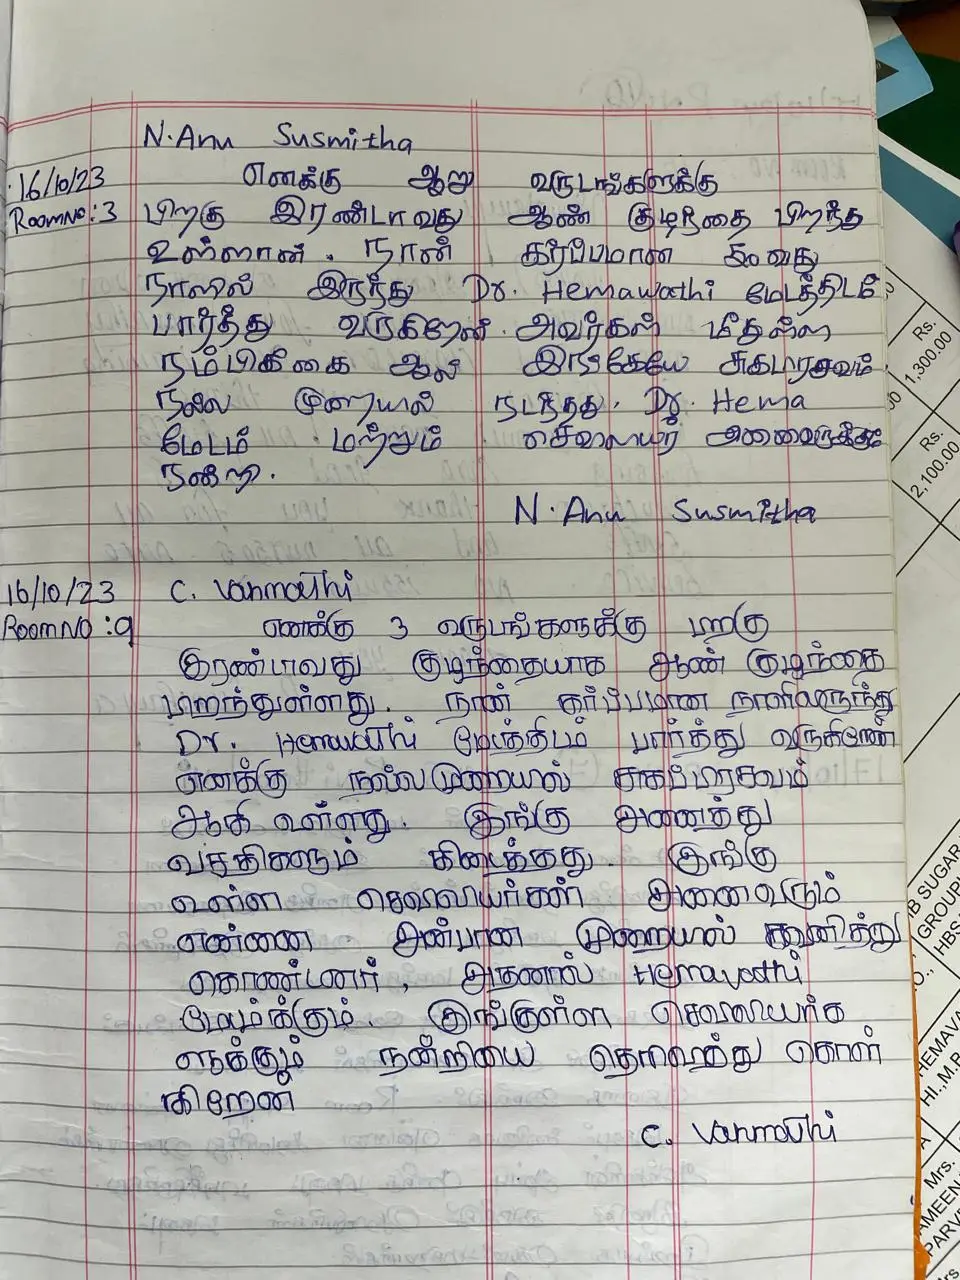 N. Anu Susmitha
16/10/23 எனக்கு ஆறு வருடங்களுக்கு
Room No : 3 பிறகு இரண்டாவது ஆண் குழந்தை பிறந்த
உள்ளான். நான் கர்ப்பமான
நாளில் இருந்து Dr. Hemawathi மேடத்திடம்
பார்த்து வருகிறேன். அவர்கள் மீதுள்ள
நம்பிக்கை ஆல் இங்கேயே சுகபிரசவம்
நல்ல முறையில் நடந்தது. Dr. Hema
மேடம் மற்றும் செவிலியர் அனைவருக்கும்
நன்றி.
N. Anu Susmitha
16/10/23 C. Vanmathi
Room NO : 9 எனக்கு 3 வருடங்களுக்கு பிறகு
இரண்டாவது குழந்தையாக ஆண் குழந்தை
பிறந்துள்ளது. நான் கர்ப்பமான நாளிலிருந்து
Dr. Hemavathi மேடத்திடம் பார்த்து வருகிறேன்
எனக்கு நல்லமுறையில் சுகப்பிரசவம்
ஆகி உள்ளது. இங்கு அனைத்து
வசதிகளும் கிடைத்தது. இங்கு
உள்ள செவிலியர்கள் அனைவரும்
என்னை அன்பான முறையில் கவனித்து
கொண்டனர், அதனால் Hemavathi
மேடம்க்கும். இங்குள்ள செவிலியர்க
ளுக்கும் நன்றியை தெரிவித்து கொள்
கிறேன்
C. Vanmathi
Rs.
1,300.00
Rs.
2,100.00
HB SUGAR
GROUP
HBS
HEMAVA
Mrs.
AMEEN
PARV